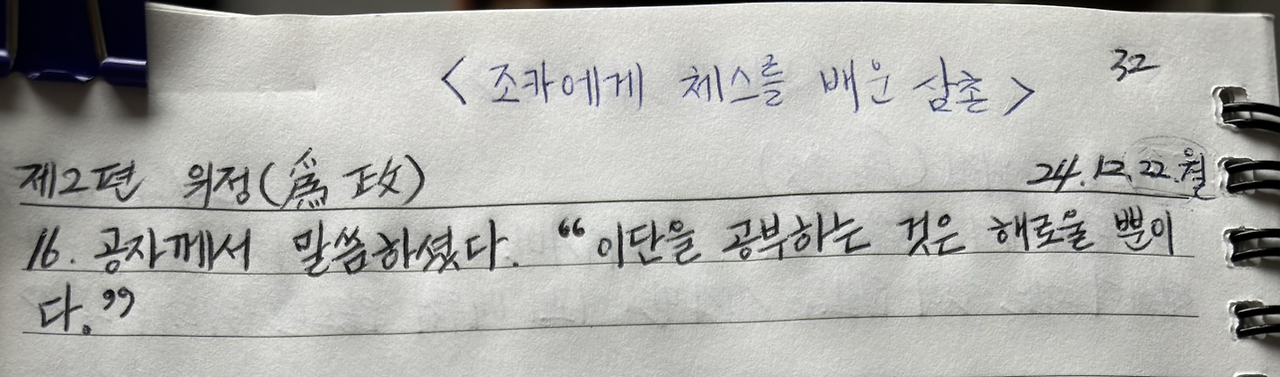 32
<조카에게 체스를 배운 삼촌>
제2편 위정(爲政) 24.12.22.월
16. 공자께서 말씀하셨다. “이단을 공부하는 것은 해로울 뿐이
다.”